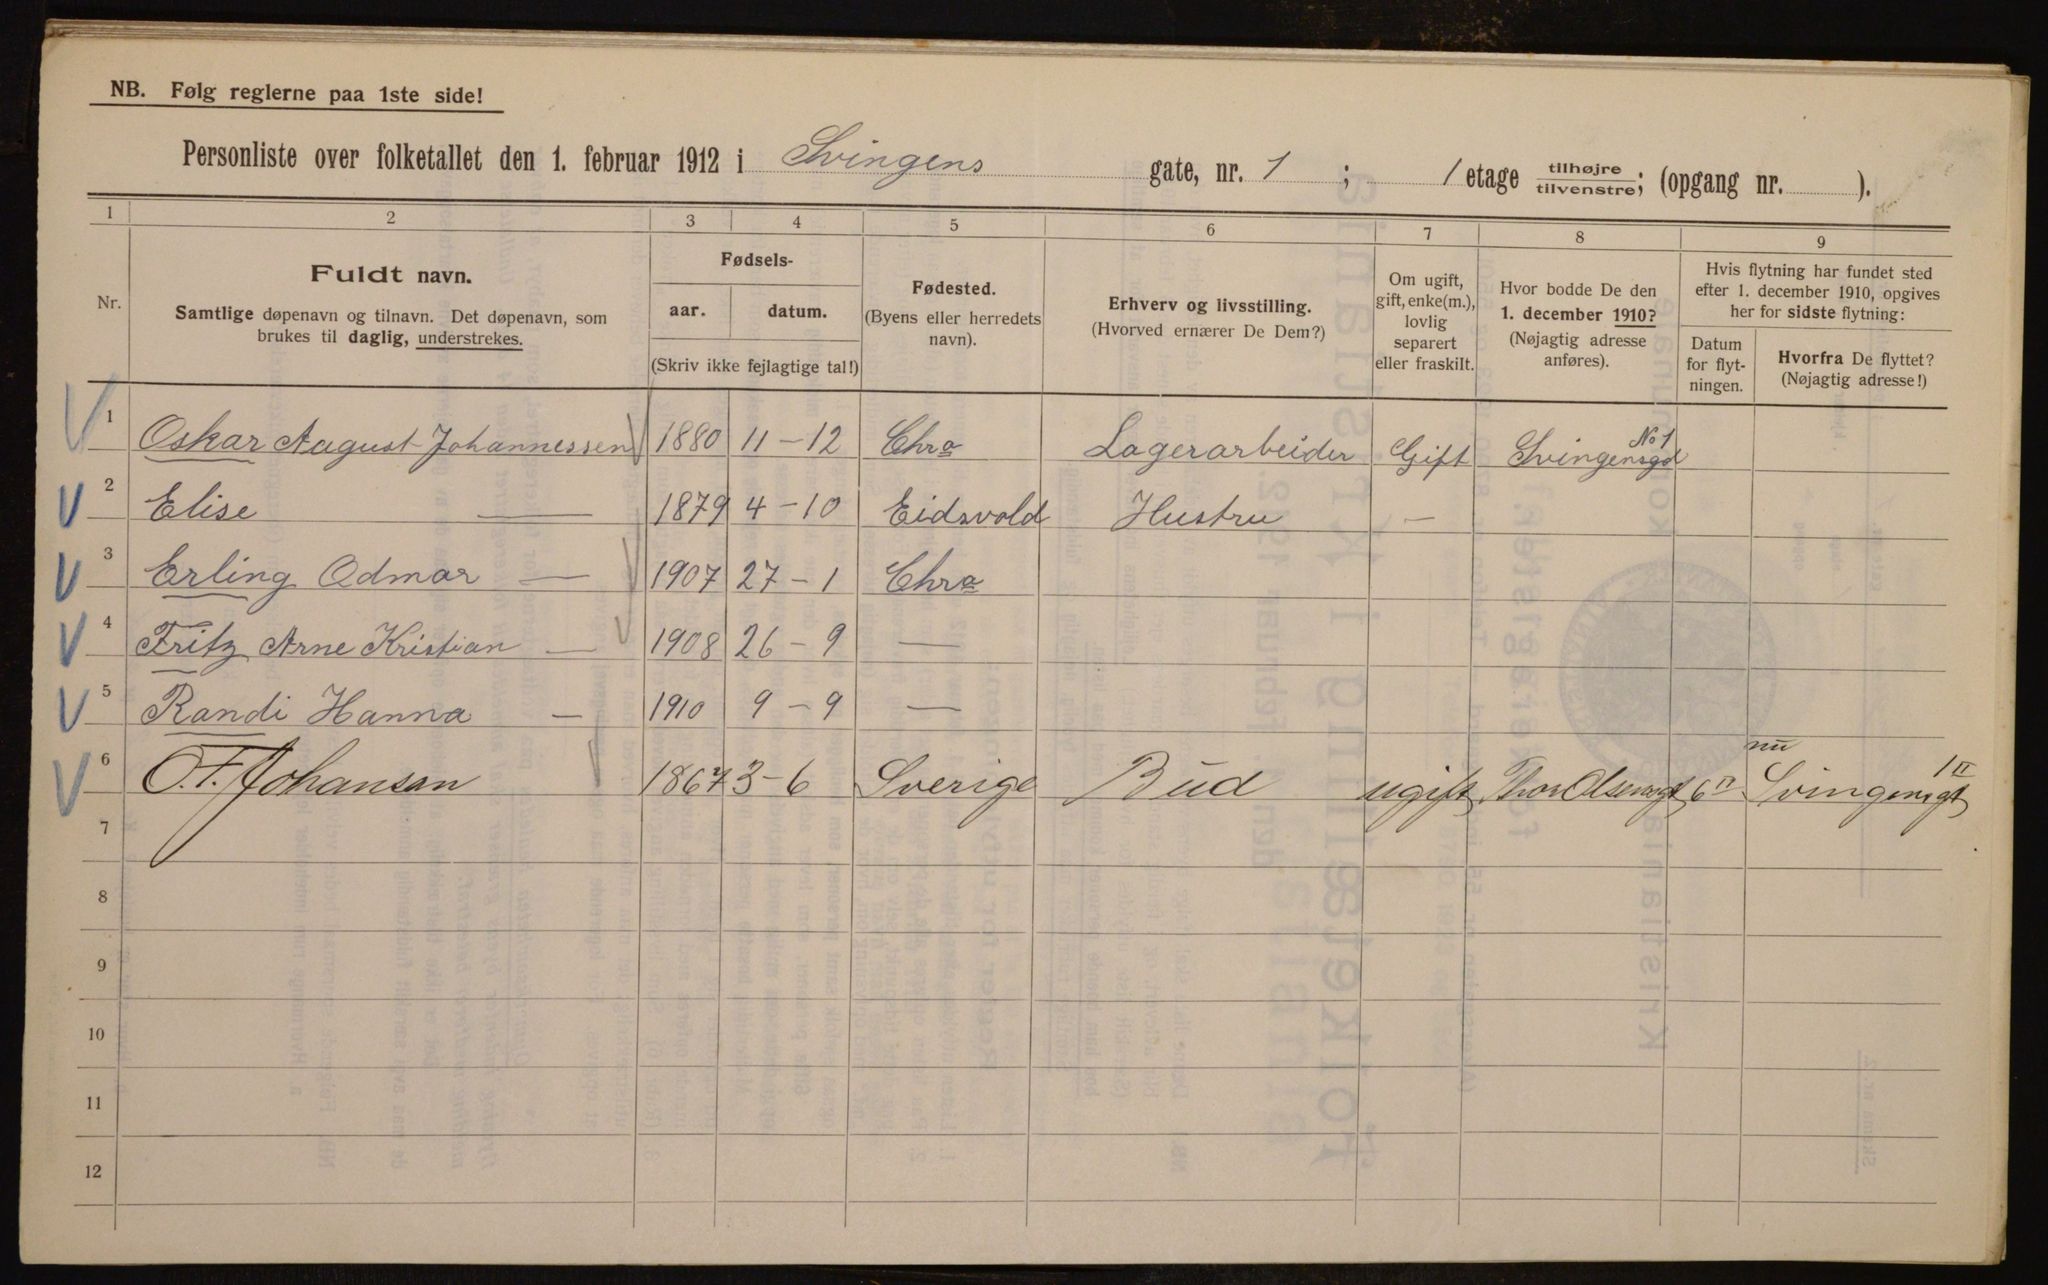 NB. Følg reglerne paa 1ste side!
Personliste over folketallet den 1. februar 1912 i Svingens gate, nr. 1 ; 1 etage tilhøjre tilvenstre; (opgang nr. ).
1 2 3 4 5 6 7 8 9
Nr.
Fuldt navn.
Samtlige døpenavn og tilnavn. Det døpenavn, som
brukes til daglig, understrekes.
Fødsels-
aar. datum.
(Skriv ikke fejlagtige tal!)
Fødested.
(Byens eller herredets
navn).
Erhverv og livsstilling.
(Hvorved ernærer De Dem?)
Om ugift,
gift, enke(m.),
lovlig
separert
eller fraskilt.
Hvor bodde De den
1. december 1910?
(Nøjagtig adresse
anføres).
Hvis flytning har fundet sted
efter 1. december 1910, opgives
her for sidste flytning:
Datum
for flyt-
ningen.
Hvorfra De flyttet?
(Nøjagtig adresse!)
1 Oskar August Johannessen 1880 11 - 12 Chra Lagerarbeider Gift Svingensgd No 1
2 Elise — 1879 4 - 10 Eidsvold Hustru —
3 Erling Odmar — 1907 27 - 1 Chra
4 Fritz Arne Kristian — 1908 26 - 9 —
5 Randi Hanna — 1910 9 - 9 —
6 O.F. Johansen 1867 3 - 6 Sverige Bud ugift Thor Olsensgt 6 II nu Svingensgt 1 II
7
8
9
10
11
12